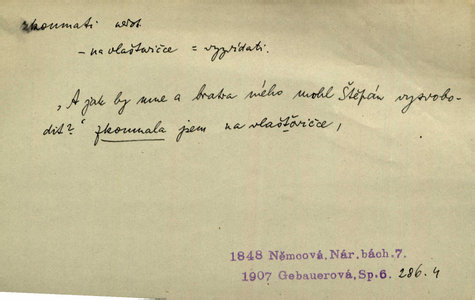 zkoumati nedok
– na vlaštvičce = vyzvídati.
„A jak by mne a bratra mého mohl Štěpán vysvobo-
dit?“ zkoumala jsem na vlaštovičce,
1848 Němcová, Nár. bách. 7.
1907 Gebauerová, Sp. 6. 286.4